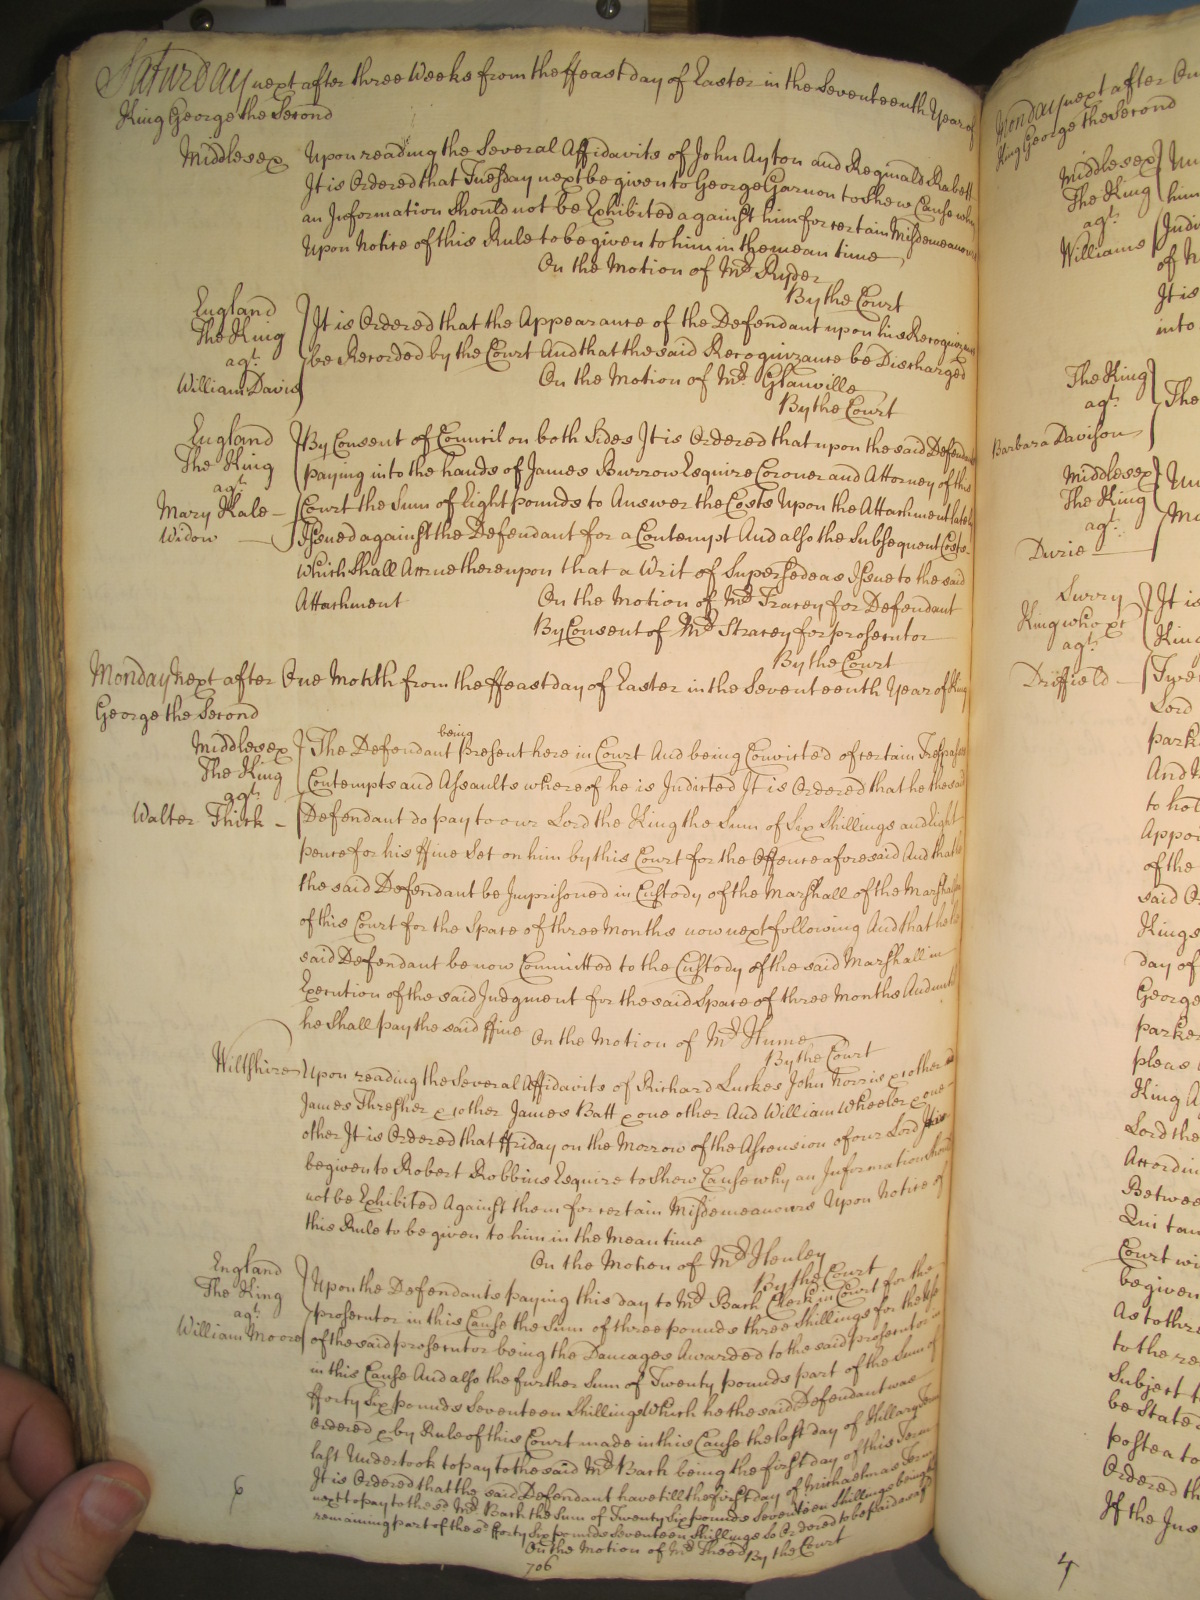 Saturday next after three Weeks from the ffeast day of Easter in the Seventeenth Year of
King George the Second
Middlesex Upon reading the Several Affidavits of John Ayton and Reginald Rabett
It is Ordered that Tuesday next be given to George Garnon to Shew Cause why
an Information Should not be Exhibited against him for certain Misdemeanours
Upon Notice of this Rule to be given to him in the mean time
On the Motion of Mr. Ryder
By the Court
England
The King
agt.
William Davis
It is Ordered that the Appearance of the Defendant upon his Recognizance
be Recorded by the Court And that the said Recognizance be Discharged
On the Motion of Mr. Glanville
By the Court
England
The King
agt.
Mary Hale
Widow
By Consent of Council on both Sides It is Ordered that upon the said Defendant
paying into the hands of James Burrow Esquire Coroner and Attorney of this
Court the Sum of Eight pounds to Answer the Costs Upon the Attachment lately
Issued against the Defendant for a Contempt And also the Subsequent Costs
Which Shall Accrue thereupon that a Writ of Supersedeas Issue to the said
Attachment On the Motion of Mr. Tracey for Defendant
By Consent of Mr. Stracey for prosecutor
By the Court
Monday Next after One Month from the ffeast day of Easter in the Seventeenth Year of King
George the Second
Middlesex
The King
agt.
Walter Thick
The Defendant being present here in Court And being Convicted of certain Trespasses
Contempts and Assaults whereof he is Indicted It is Ordered that he the said
Defendant do pay to our Lord the King the Sum of Six Shillings and Eight
pence for his ffine Set on him by this Court for the Offence aforesaid And that
the said Defendant be Imprisoned in Custody of the Marshall of the Marshalsea
of this Court for the Space of three Months now next following And that he the
said Defendant be now Committed to the Custody of the said Marshall in
Execution of the said Judgment for the said Space of three Months And until
he Shall pay the said ffine On the Motion of Mr. Hume
By the Court
Wiltshire Upon reading the Several Affidavits of Richard Luckes John Norris & 10 other
James Thresher & 10 ther James Batt & one other And William Wheeler & one
other It is Ordered that ffriday on the Morrow of the Ascension of our Lord
be given to Robert Robbins Esquire to Shew Cause why an Information Should
not be Exhibited Against them for certain Misdemeanours Upon Notice of
this Rule to be given to him in the Mean time
On the Motion of Mr. Henley
By the Court
England
The King
agt.
William Moore
Upon the Defendants paying this day to Mr. Bark Clerk in Court for the
prosecutor in this Cause the Sum of three pounds three Shillings for the Use
of the said prosecutor being the Damages Awarded to the said prosecutor
in this Cause And also the further Sum of Twenty pounds part of the Sum of
fforty Six pounds Seventeen Shillings Which he the said Defendant was
Ordered & by Rule of this Court made in this Cause the last day of Hillary Term
last Undertook to pay to the said Mr. Bark being the first day of this Term
It is Ordered that the said Defendant have till the first day of Michaelmas Term
next to pay to the sd Mr. Bark the Sum of Twenty Six pounds Seventeen Shillings being the
remaining part of the sd fforty Six pounds Seventeen Shillings so Ordered to be paid
On the Motion of Mr. Theed By the Court
6
706
Monday next after
King George the Second
Middlesex
The King
agt.
Williams
him
of
It is
into
The King
agt.
Barbara Davison
The
Middlesex
The King
agt.
Durie
Surry
King who pr
agt.
Driffield
It is
King
Lord
park
And
to
of the
said
Kings
day of
George
parker
pleas
King A
Lord the
Betwee
Qui tam
Court wi
be given
As to
to the re
Subject t
be Stated
postea to
Ordered th
If the Jus
4